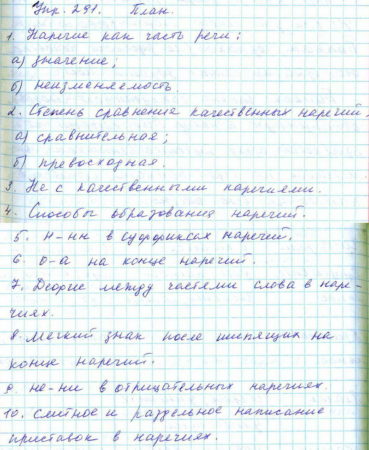 Упр. 291. План.
1. Наречие как часть речи;
а) значение;
б) неизменяемость.
2. Степень сравнения качественных наречий.
а) сравнительная;
б) превосходная.
3. Не с качественными наречиями.
4. Способы образования наречий.
5. н-нн в суффиксах наречий.
6. о-а на конце наречий.
7. Дефис между частями слова в наре-
чиях.
8. Мягкий знак после шипящих на
конце наречий.
9. не-ни в отрицательных наречиях.
10. слитное и раздельное написание
приставок в наречиях.